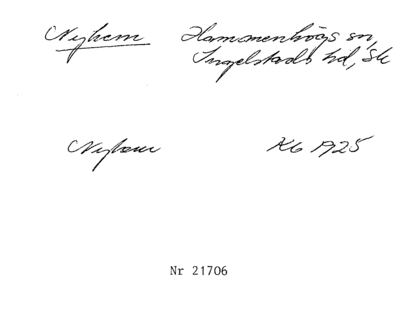 Nyhem Hammenhögs sn,
Ingelstads hd, Sk
Nyhem Kb 1925
Nr 21706